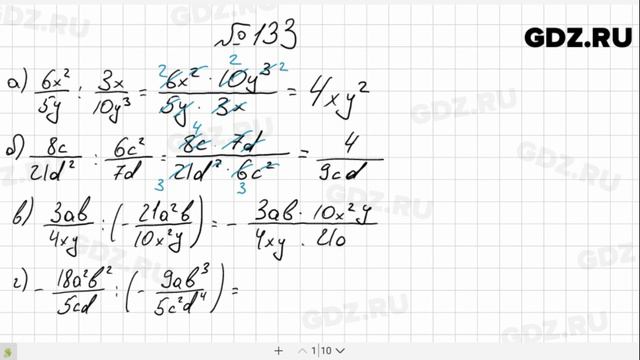 № 133
GDZ.RU
а) 6x²/5y : 3x/10y³ = 6x² · 10y³/5y · 3x = 4xy²
б) 8c/21d² : 6c²/7d = 8c · 7d/21d² · 6c² = 4/9cd
в) 3ab/4xy : (- 21a²b/10x²y) = - 3ab · 10x²y/4xy · 21a
г) - 18a²b²/5cd : (- 9ab³/5c²d⁴) =
1 10